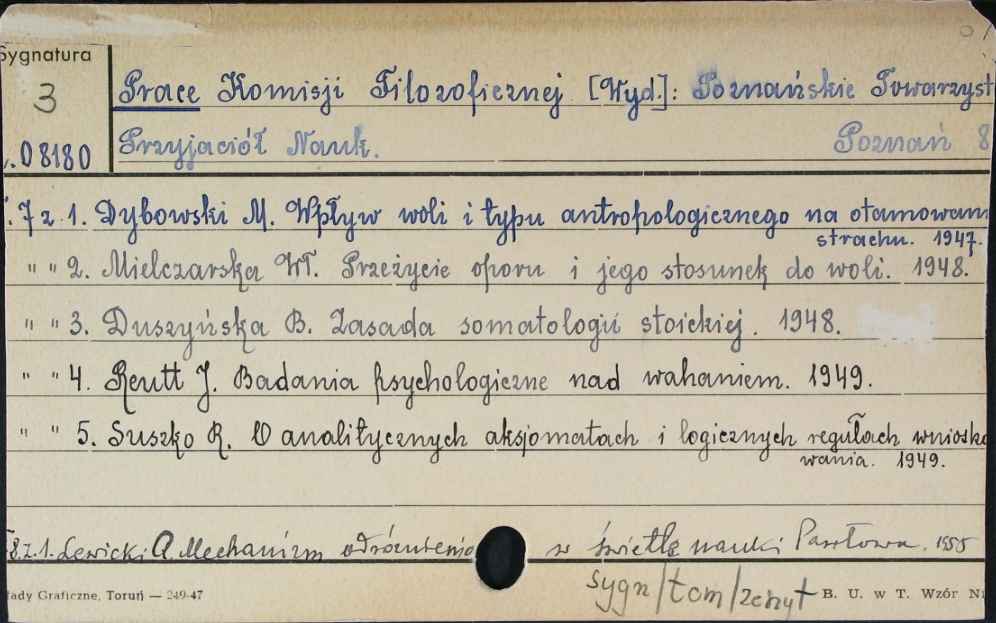 Sygnatura
3
08180
Prace Komisji Filozoficznej [Wyd.]: Poznańskie Towarzyst
Przyjaciół Nauk. Poznań 8
7 z 1. Dybowski M. Wpływ woli i typu antropologicznego na otamowani
strachu. 1947.
" " 2. Mielczarska Wł. Przeżycie oporu i jego stosunek do woli. 1948.
" " 3. Duszyńska B. Zasada somatologii stoickiej. 1948.
" " 4. Reutt J. Badania psychologiczne nad wahaniem. 1949.
" " 5. Suszko R. O analitycznych aksjomatach i logicznych regułach wniosko
wania. 1949.
8.z.1. Lewicki A. Mechanizm odróżnienia w świetle nauki Pawłowa. 1955
sygn/tom/zeszyt
ady Graficzne, Toruń — 249-47 B. U. w T. Wzór N